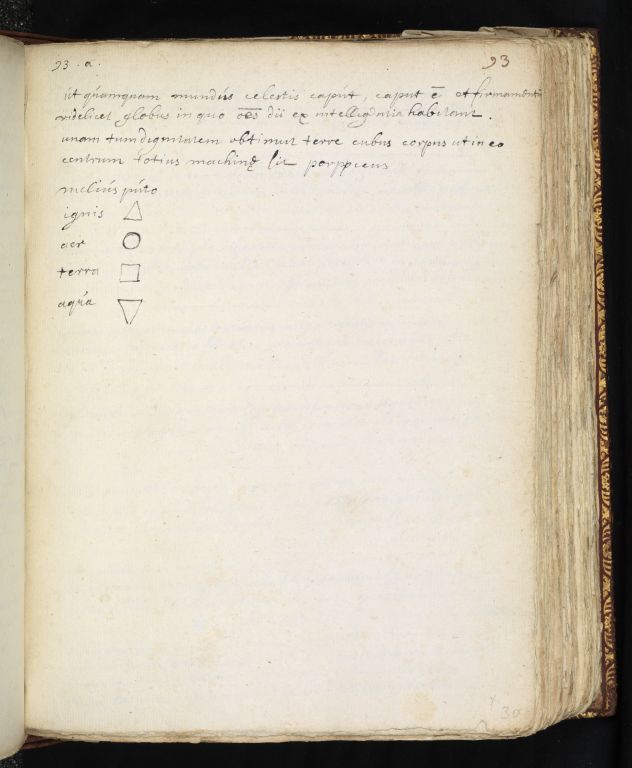 93 . a .
93
ut quamquam mundus celestis caput, caput ē et firmamenti
videlicet globus in quo oēs dii ex intelligentia habitant .
unam tum dignitatem obtinuit terre cubus corpus ut in eo
centrum totius machinę sit
melius puto
ignis
aer
terra
aqua
30